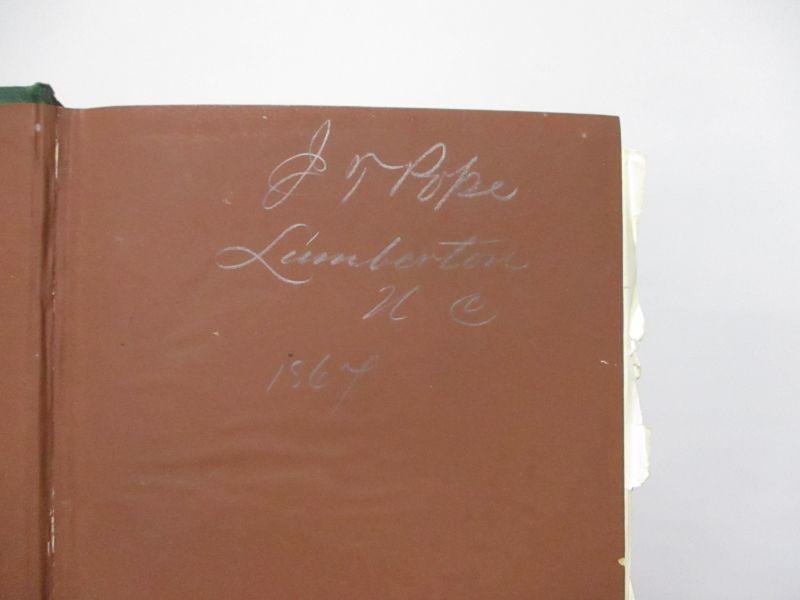 J T Pope
Lumberton
N C
1867